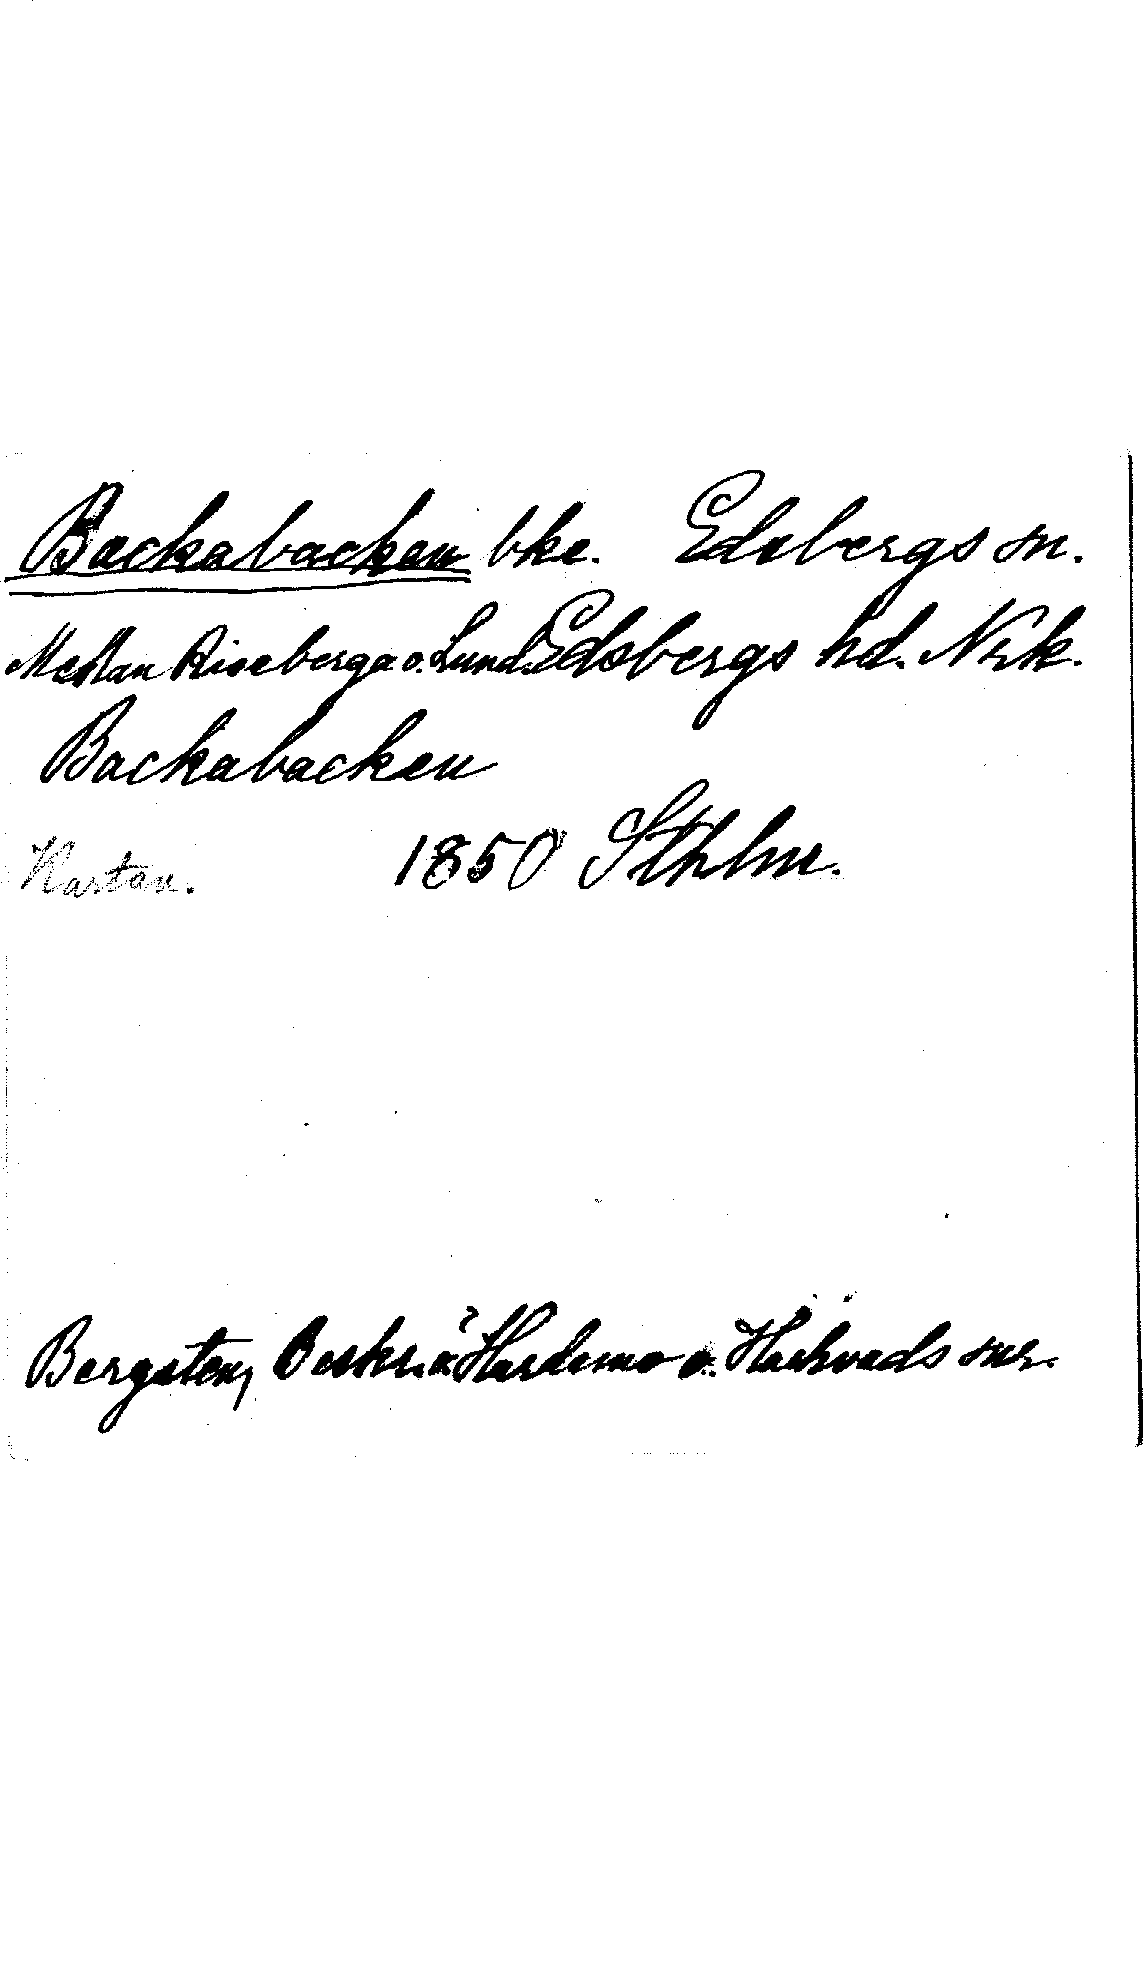 Backabacken bke. Edsbergs sn.
Mellan Riseberga o. Lund. Edsbergs hd. Nrk.
Backabacken
Kartan. 1850 Sthlm.
Bergsten, Beskr. ö. Hardemo o. Hackvads snr.